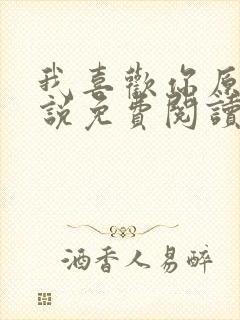 我喜歡你原
說免費閱讀
酒香人易醉